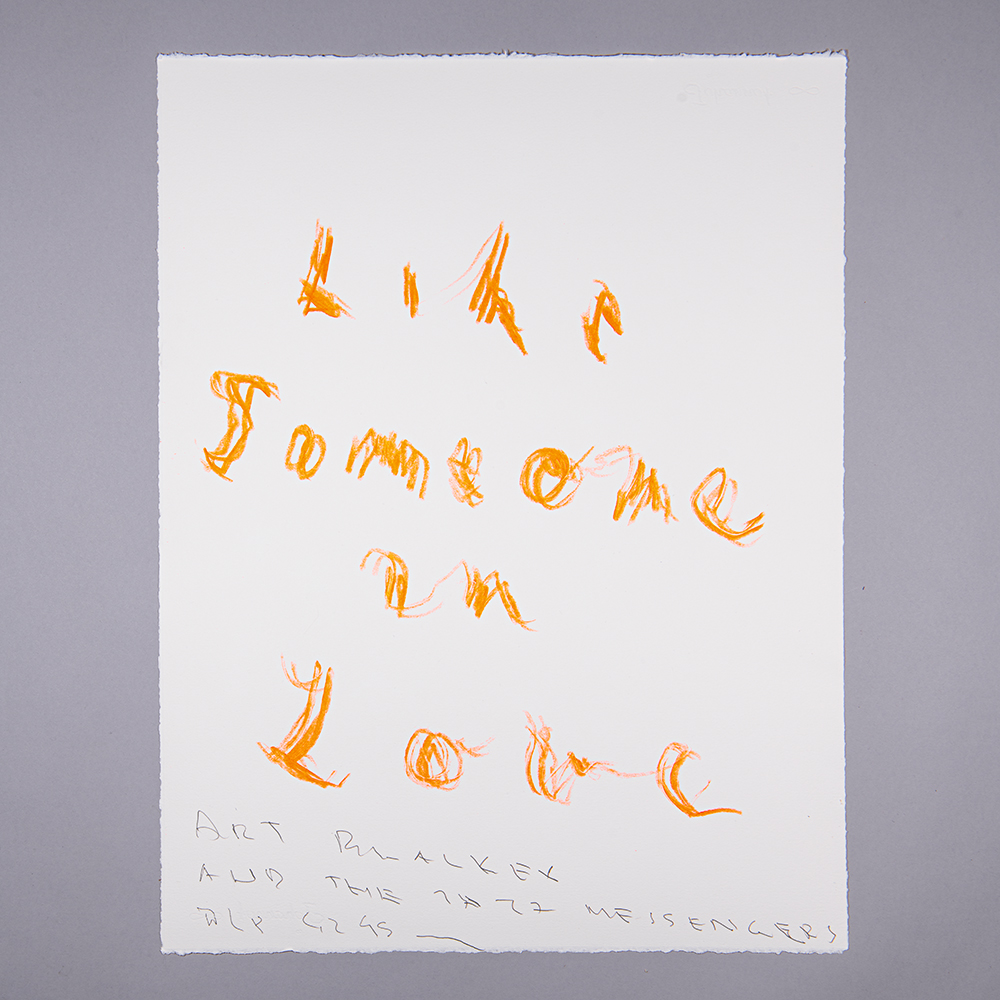 Like
Someone
in
Love
ART BLAKEY
AND THE JAZZ MESSENGERS
BLP 4245